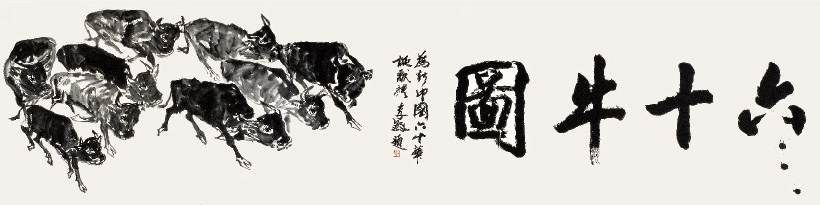 六十牛圖
為新中國六十華
誕獻禮 李 題